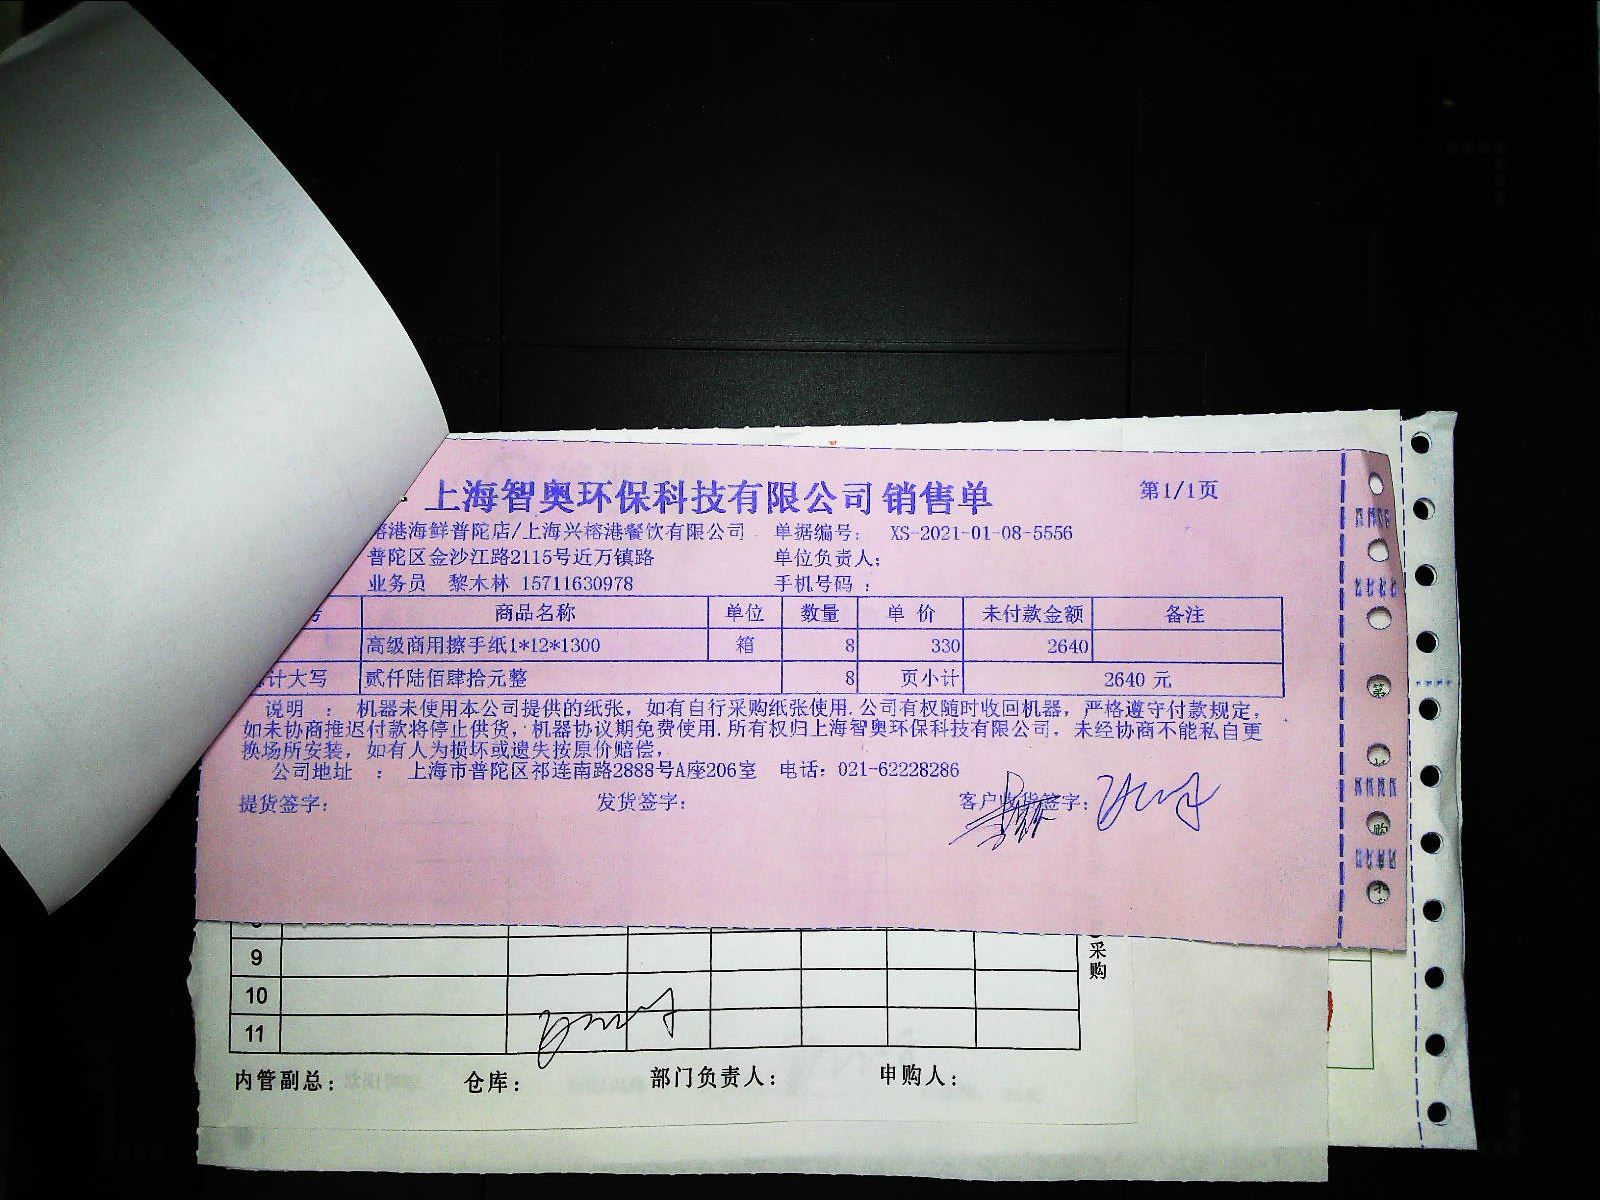 上海智奥环保科技有限公司 销售单 第1/1页
榕港海鲜普陀店/上海兴榕港餐饮有限公司 单据编号： XS-2021-01-08-5556
普陀区金沙江路2115号近万镇路 单位负责人：
业务员 黎木林 15711630978 手机号码：
号 商品名称 单位 数量 单 价 未付款金额 备注
高级商用擦手纸1*12*1300 箱 8 330 2640
计大写 贰仟陆佰肆拾元整 8 页小计 2640 元
说明 ： 机器未使用本公司提供的纸张，如有自行采购纸张使用.公司有权随时收回机器，严格遵守付款规定，
如未协商推迟付款将停止供货，机器协议期免费使用.所有权归上海智奥环保科技有限公司，未经协商不能私自更
换场所安装，如有人为损坏或遗失按原价赔偿，
公司地址 ： 上海市普陀区祁连南路2888号A座206室 电话：021-62228286
提货签字： 发货签字： 客户收货签字：
第
购
采购
9
10
11
内管副总： 仓库： 部门负责人： 申购人：